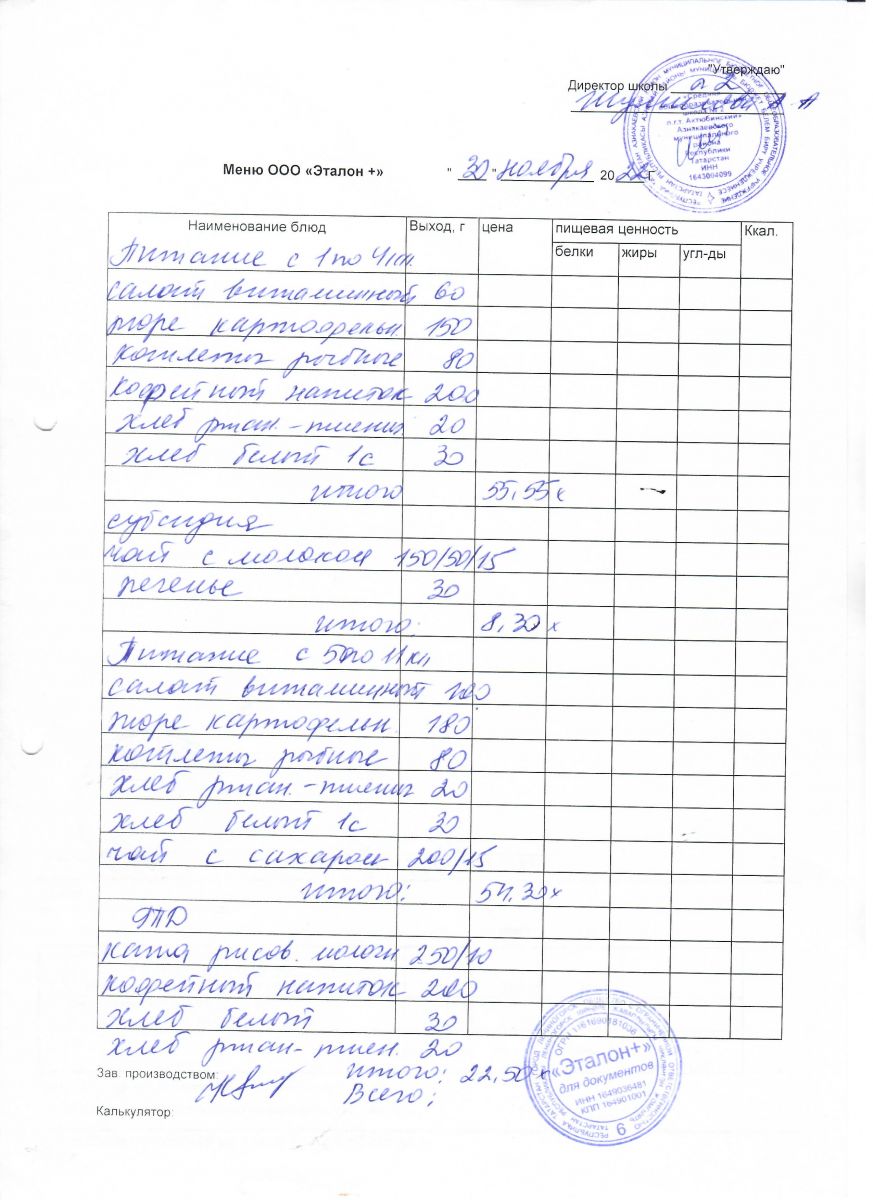 "Утверждаю"
Директор школы № 2
Меню ООО «Эталон +» "30" ноября 2022 г
Наименование блюд Выход, г цена пищевая ценность Ккал.
белки жиры угл-ды
Питание с 1 по 4 кл.
салат витаминный 60
пюре картофельн 150
котлеты рыбные 80
кофейный напиток 200
хлеб ржан.-пшенич 20
хлеб белый 1с 30
итого 55,55 к
субсидия
чай с молоком 150/50/15
печенье 30
итого: 8,30 к
Питание с 5 по 11 кл
салат витаминный 100
пюре картофельн. 180
котлеты рыбные 80
хлеб ржан.-пшенич 20
хлеб белый 1с 30
чай с сахаром 200/15
итого: 54,30 к
каша рисов. молочн 250/10
кофейный напиток 200
хлеб белый 30
хлеб ржан-пшен. 20
Зав. производством: итого: 22,50 к
Всего:
Калькулятор:
«Средняя
общеобразовательная
школа № 2
п.г.т. Актюбинский»
Азнакаевского
муниципального
района
Республики
Татарстан
ИНН
1643004099
ОГРН 1161690181036
«Эталон+»
для документов
ИНН 1649036481
КПП 164901001